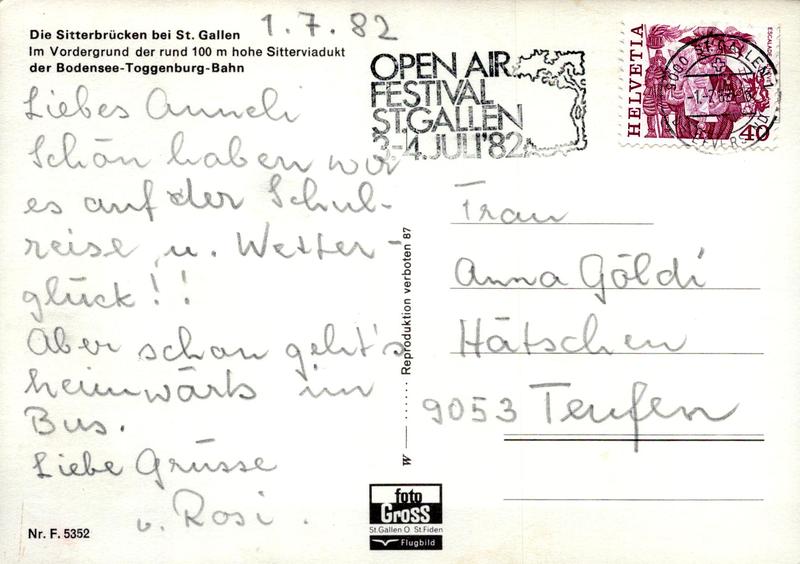 Die Sitterbrücken bei St. Gallen
Im Vordergrund der rund 100 m hohe Sitterviadukt
der Bodensee-Toggenburg-Bahn
1.7.82
Liebes Anneli
Schön haben wir
es auf der Schul-
reise u. Wetter-
glück!!
Aber schon geht's
heimwärts im
Bus.
Liebe Grüsse
v. Rosi.
Nr. F. 5352
OPEN AIR
FESTIVAL
ST.GALLEN
3.-4. JULI '82
HELVETIA
ESCALADE
40
9000 ST. GALLEN 1
Frau
Anna Göldi
Hätschen
9053 Teufen
W — ...... Reproduktion verboten 87
foto
Gross
St.Gallen O. St.Fiden
Flugbild